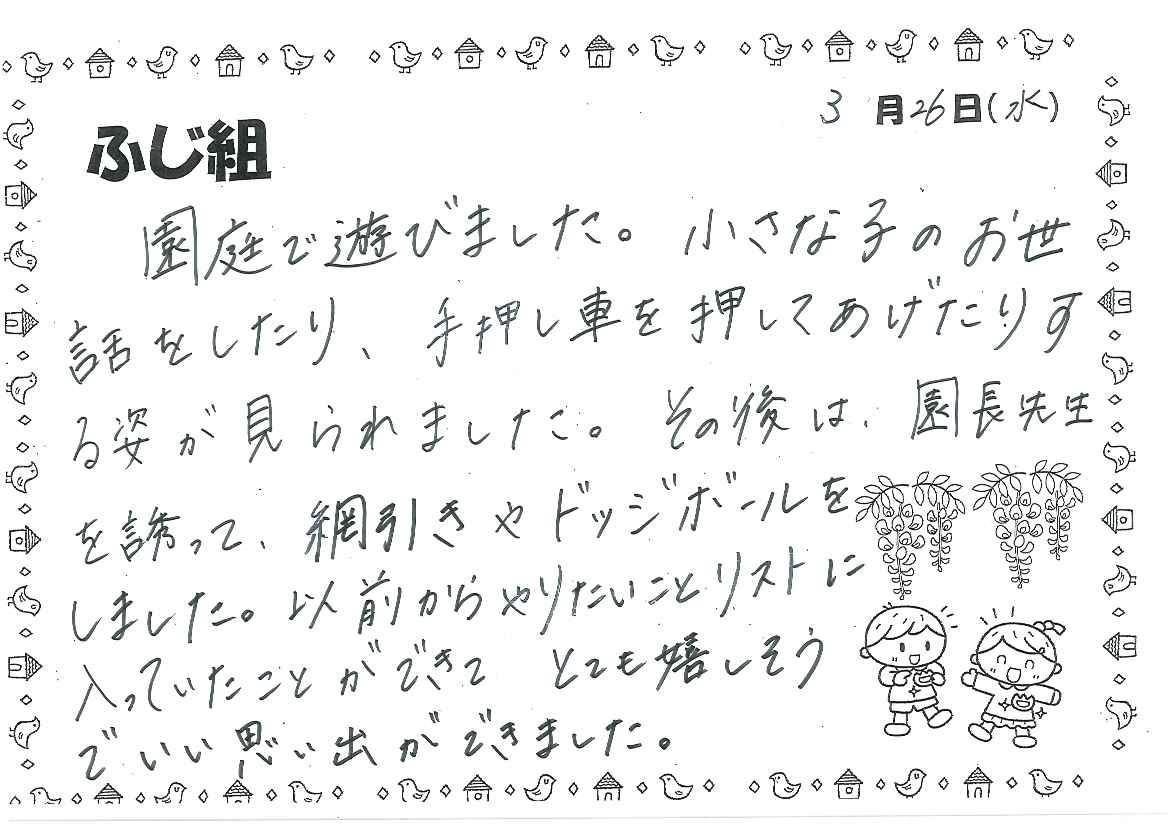 3月26日(水)
ふじ組
園庭で遊びました。小さな子のお世
話をしたり、手押し車を押してあげたりす
る姿が見られました。その後は、園長先生
を誘って、綱引きやドッジボールを
しました。以前からやりたいことリストに
入っていたことができて とても嬉しそう
でいい思い出ができました。